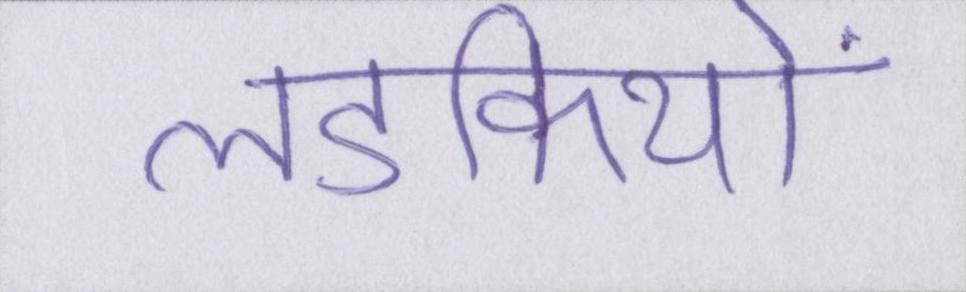 लडकियों